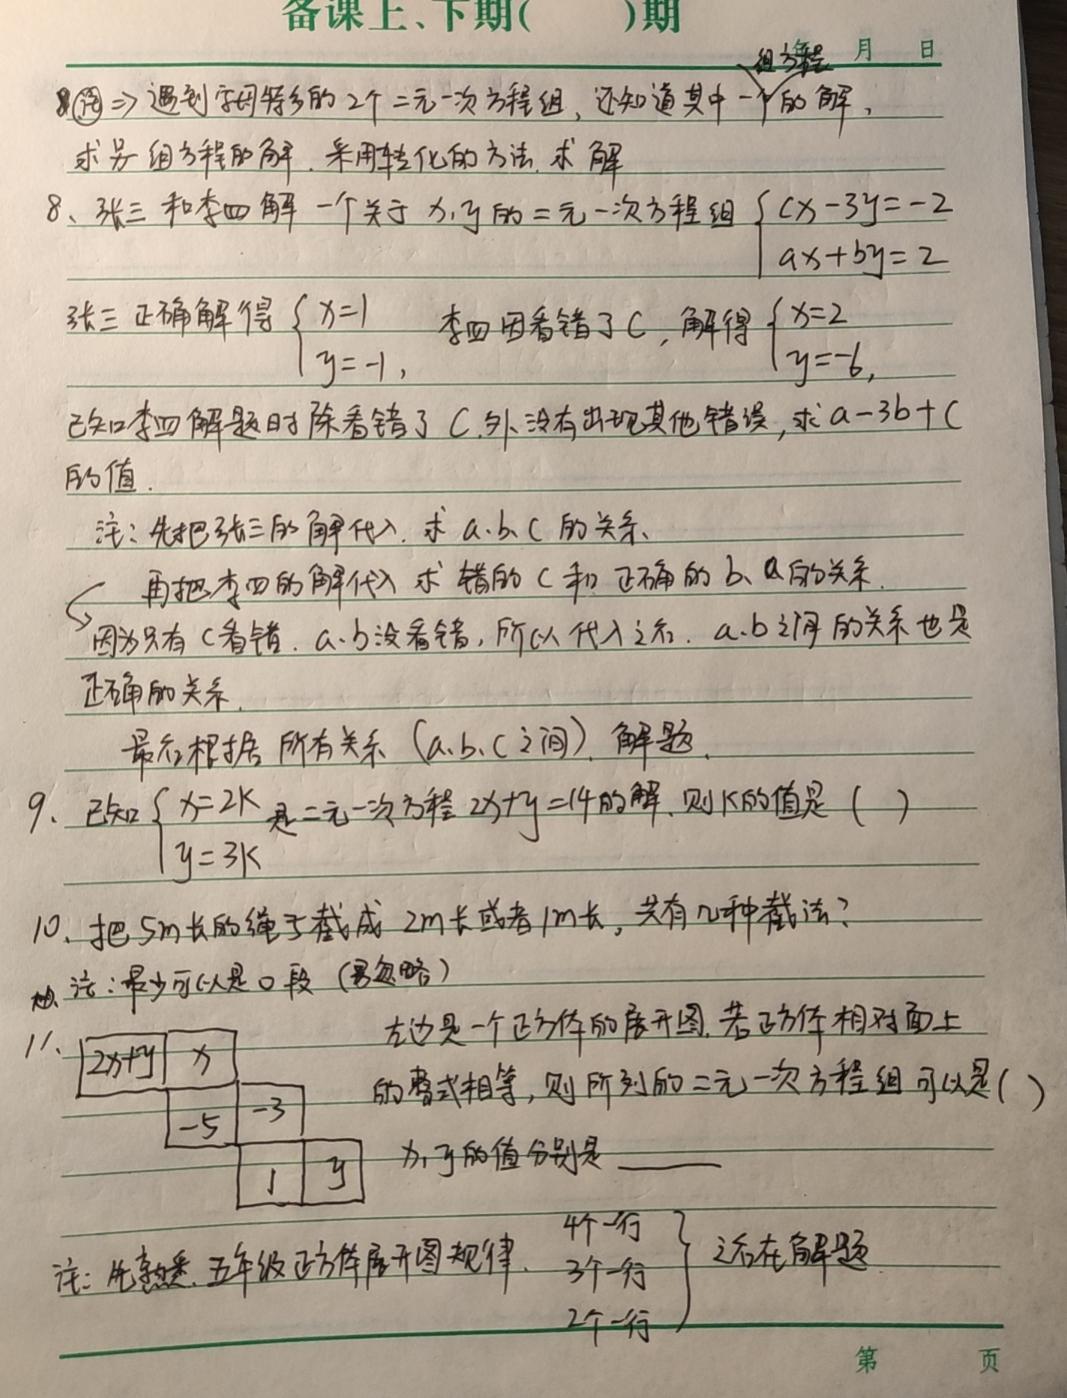 备课上、下期(  )期
年 月 日
组方程
注 ⇒ 遇到字母特多的2个二元一次方程组,还知道其中一个的解,
求另一组方程的解.采用转化的方法.求解
8、张三和李四解一个关于x,y的二元一次方程组 { cx-3y=-2
ax+by=2
张三正确解得 { x=1 李四因看错了C,解得 { x=2
y=-1, y=-6,
已知李四解题时除看错了C.外没有出现其他错误,求a-3b+C
的值.
注:先把张三的解代入.求a.b.C的关系.
再把李四的解代入求错的C和正确的b、a的关系.
因为只有C看错.a.b没看错,所以代入之后.a.b之间的关系也是
正确的关系.
最后根据所有关系(a.b.C之间).解题.
9、已知 { x=2K 是二元一次方程2x+y=14的解.则K的值是( )
y=3K
10、把5m长的绳子截成2m长或者1m长,共有几种截法?
注:最少可以是0段(易忽略)
11、 2x+y x 左边是一个正方体的展开图.若正方体相对面上
-5 -3 的整式相等,则所列的二元一次方程组可以是( )
1 y x,y的值分别是
注:先熟悉.五年级正方体展开图规律. 4个一行
3个一行 } 之后在解题
2个一行
第 页